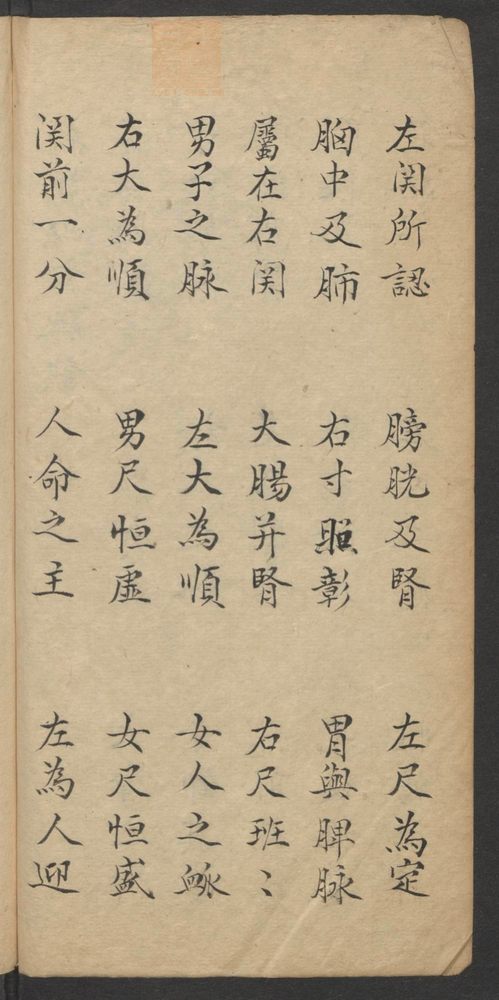 左関所認 膀胱及腎 左尺為定
胸中及肺 右寸昭彰 胃與脾脉
屬在右関 大腸并腎 右尺班〻
男子之脉 左大為順 女人之䘑
右大為順 男尺恒虛 女尺恒盛
関前一分 人命之主 左為人迎